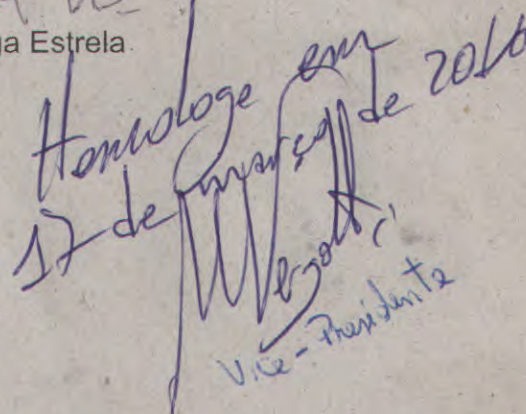 ga Estrela
Homologe em
17 de março de 2016
Vice-Presidente